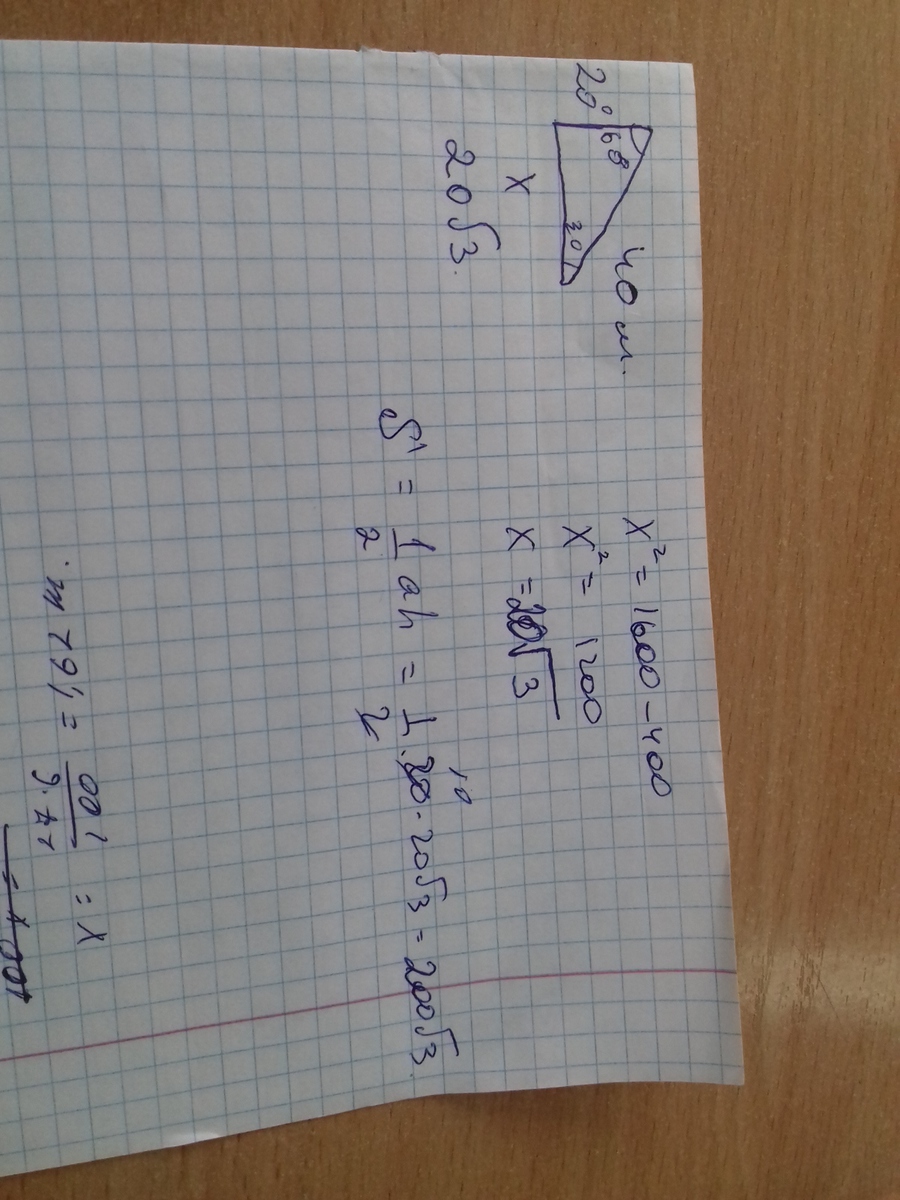 40 м.
60
30
20
X
20√3.
X² = 1600 - 400
X² = 1200
X = 20√3
S = 1/2 ah = 1/2 · 20 · 20√3 = 200√3
10
X = 100 = 1,67 m.